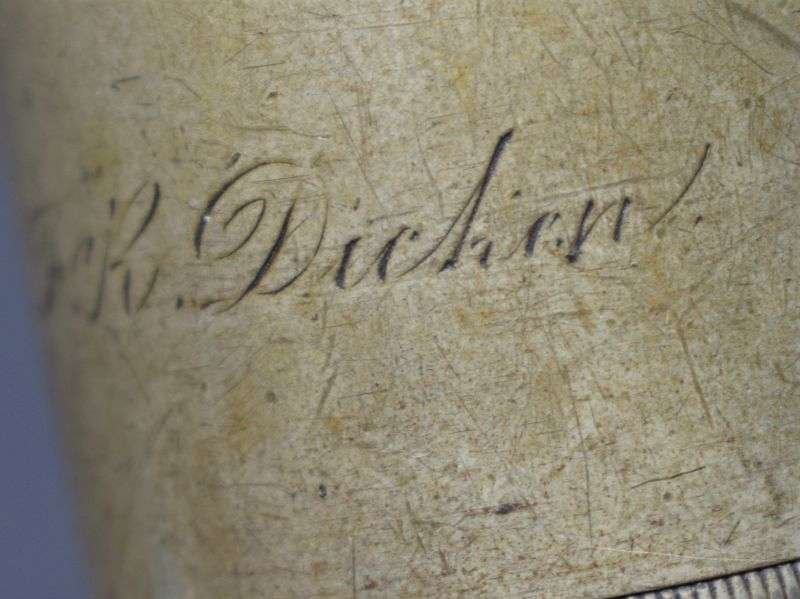 R. Dicken